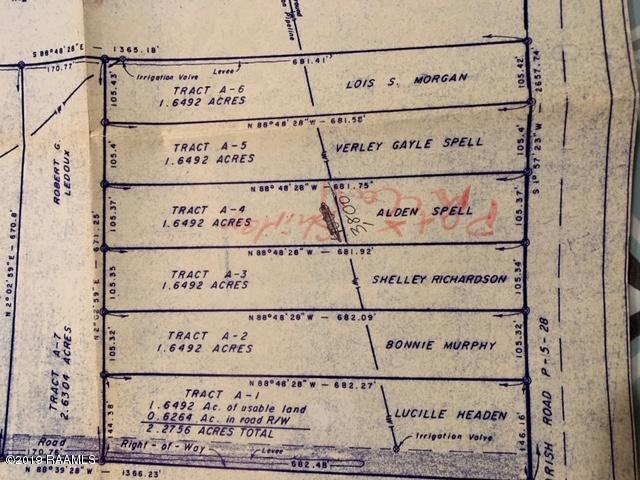 S 88°48'28"E
1365.18'
170.77'
Irrigation Valve
Levee
681.41'
Pipeline
LOIS S. MORGAN
TRACT A-6
1.6492 ACRES
105.43'
105.42'
2657.74'
N 88°48'28"W - 681.58'
VERLEY GAYLE SPELL
TRACT A-5
1.6492 ACRES
105.4'
105.4'
S 1°57'23"W
N 88°48'28"W - 681.75'
ROBERT G.
LEDOUX
TRACT A-4
1.6492 ACRES
3800
ALDEN SPELL
105.37'
105.37'
681.92'
N 88°48'28"W
N 2°02'59"E - 670.8'
N 2°02'59"E - 671.25'
TRACT A-3
1.6492 ACRES
SHELLEY RICHARDSON
105.35
105.34'
N 88°48'28"W - 682.09'
TRACT A-2
1.6492 ACRES
BONNIE MURPHY
105.32'
105.32'
TRACT A-7
2.6304 ACRES
N 88°48'28"W - 682.27'
TRACT A-1
1.6492 Ac. of usable land
0.6264 Ac. in road R/W
2.2756 ACRES TOTAL
LUCILLE HEADEN
144.38'
146.16'
Irrigation Valve
Road
Right-of-Way
Levee
682.48
N 88°39'28"W
1366.23'
RISH ROAD P-5-28
©2019-RAAMLS